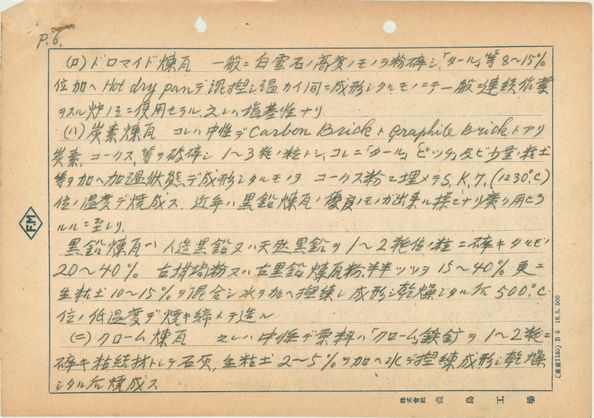 P.6.
(ロ) ドロマイド煉瓦 一般ニ白雲石ノ高度ノモノヲ粉砕シ、「タール」等 8〜15%
位加ヘ Hot dry pan デ混捏シ温カイ間ニ成形シタルモノニテ一般ニ連続作業
ヲスル炉ノミニ使用セラル 之レハ塩基性ナリ
(ハ) 炭素煉瓦 コレハ中性デ Carbon Brick ト Graphite Brick トアリ
炭素、コークス、等ヲ破砕シ 1〜3粍ノ粒トシ、コレニ「タール」「ピッチ」及ビ少量ノ粘土
等ヲ加ヘ加温状態デ成形シタルモノヲ コークス粉デ埋メテ S.K.7. (1230°C)
位ノ温度デ焼成ス 近年ハ黒鉛煉瓦ノ優良ノモノガ出来ル様ニナリ廣ク用ヒラ
ルルニ至レリ.
黒鉛煉瓦ハ人造黒鉛又ハ天然黒鉛ヲ 1〜2粍位ノ粒ニ砕キタルモノ
20〜40% 古坩堝粉又ハ古黒鉛煉瓦粉半半ヅツヲ 15〜40% 更ニ
生粘土 10〜15%ヲ混合シ水ヲ加ヘ捏練シ成形シ乾燥シタル后 500°C
位ノ低温度デ焼キ締メテ造ル
(ニ) クローム煉瓦 之レハ中性デ原料ハ「クローム鉄鉱」ヲ 1〜2粍ニ
砕キ粘結材トシテ石灰、生粘土 2〜5%ヲ加ヘ水デ捏練成形シ乾燥
シタル后焼成ス
FM
(東京1180) B5 18.5.500
株式会社 森島工場